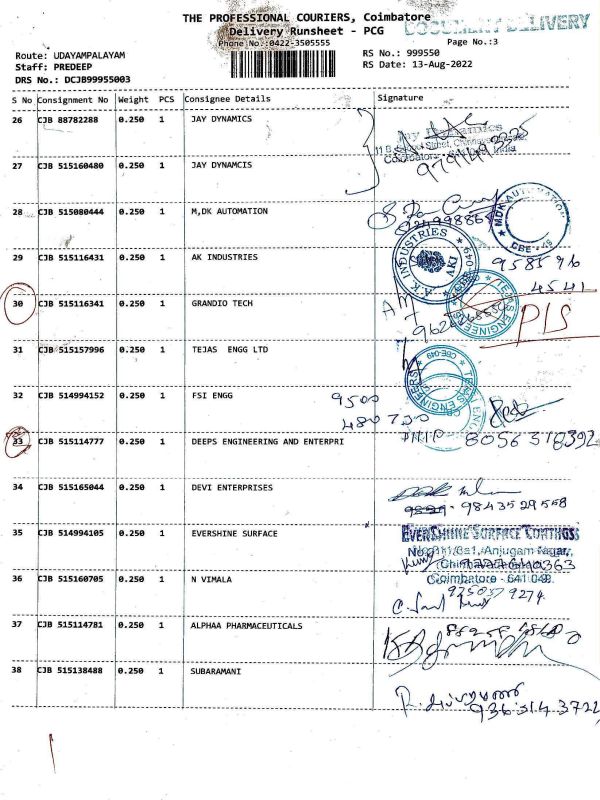 THE PROFESSIONAL COURIERS, Coimbatore
DOCUMENT DELIVERY
Delivery Runsheet - PCG
Phone No.:0422-3505555
Page No.:3
Route: UDAYAMPALAYAM
RS No.: 999550
Staff: PREDEEP
RS Date: 13-Aug-2022
DRS No.: DCJB99955003
S No Consignment No Weight PCS Consignee Details Signature
26 CJB 88782288 0.250 1 JAY DYNAMICS
27 CJB 515160480 0.250 1 JAY DYNAMCIS
28 CJB 515080444 0.250 1 M,DK AUTOMATION
MDK AUTOMATION
CBE
29 CJB 515116431 0.250 1 AK INDUSTRIES
A.K. INDUSTRIES
AKI
958596
4541
30 CJB 515116341 0.250 1 GRANDIO TECH
TEJAS ENGINEERS
PIS
31 CJB 515157996 0.250 1 TEJAS ENGG LTD
TEJAS ENGINEERS
CBE-049
32 CJB 514994152 0.250 1 FSI ENGG
9500
480700
33 CJB 515114777 0.250 1 DEEPS ENGINEERING AND ENTERPRI
8056378392
34 CJB 515165044 0.250 1 DEVI ENTERPRISES
9843529558
35 CJB 514994105 0.250 1 EVERSHINE SURFACE
EVERSHINE SURFACE COATINGS
Anjugam Nagar,
Coimbatore - 641 049.
36 CJB 515160705 0.250 1 N VIMALA
37 CJB 515114781 0.250 1 ALPHAA PHARMACEUTICALS
38 CJB 515138488 0.250 1 SUBARAMANI